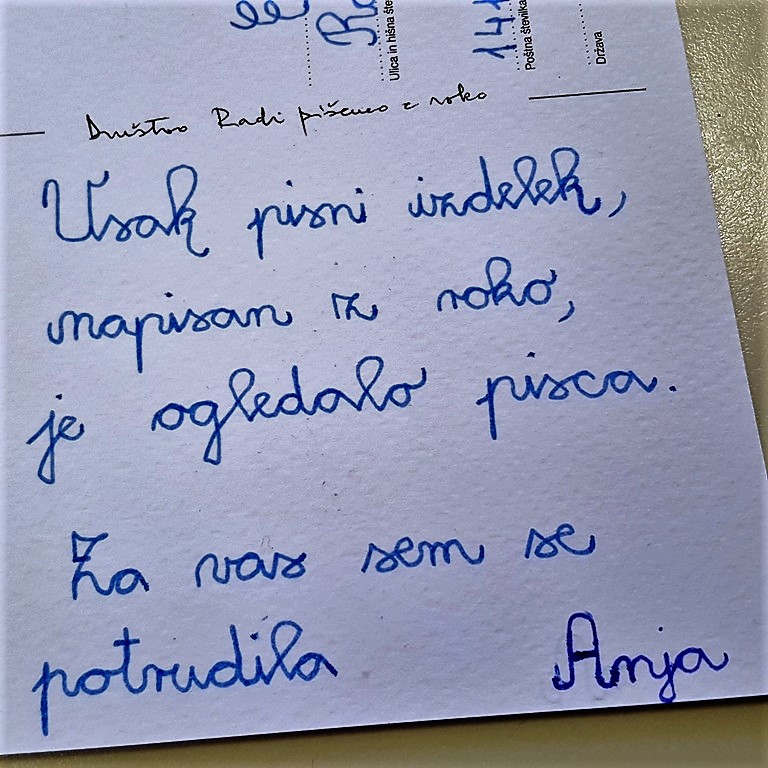 Ulica in hišna šte
141
Poštna številka
Država
Društvo Radi pišemo z roko
Vsak pisni izdelek,
napisan z roko,
je ogledalo pisca.
Za vas sem se
potrudila Anja